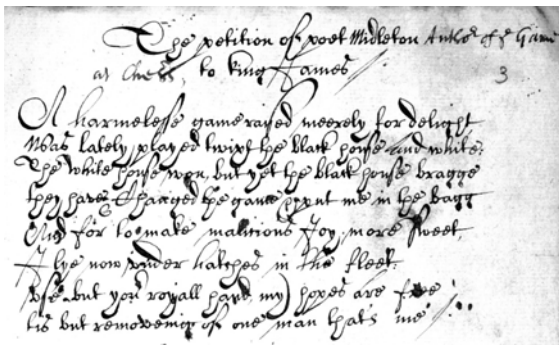 The petition of poet Midleton Author of ye Game
at Chess, to King James
3
A harmelesse game raysd meerely for delight
Was lately played twixt the black house and white;
The white house won, but yet the black house bragge
they have changed the game & put me in the bagg
And for to make malicious Joy, more sweet,
I lye now under hatches in the fleet;
use but your royall hand my hopes are free
tis but removeing of one man that's me